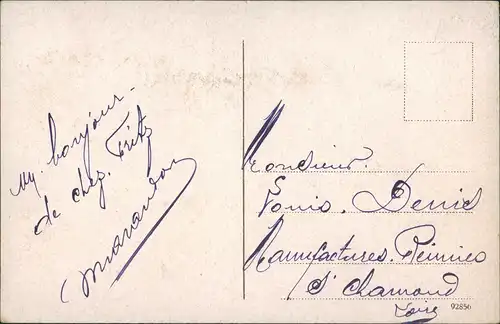 un bonjour
de chez Fritz
Marandon
Monsieur
Louis. Denis
Manufactures Réunies
St Chamond
Loire
92856